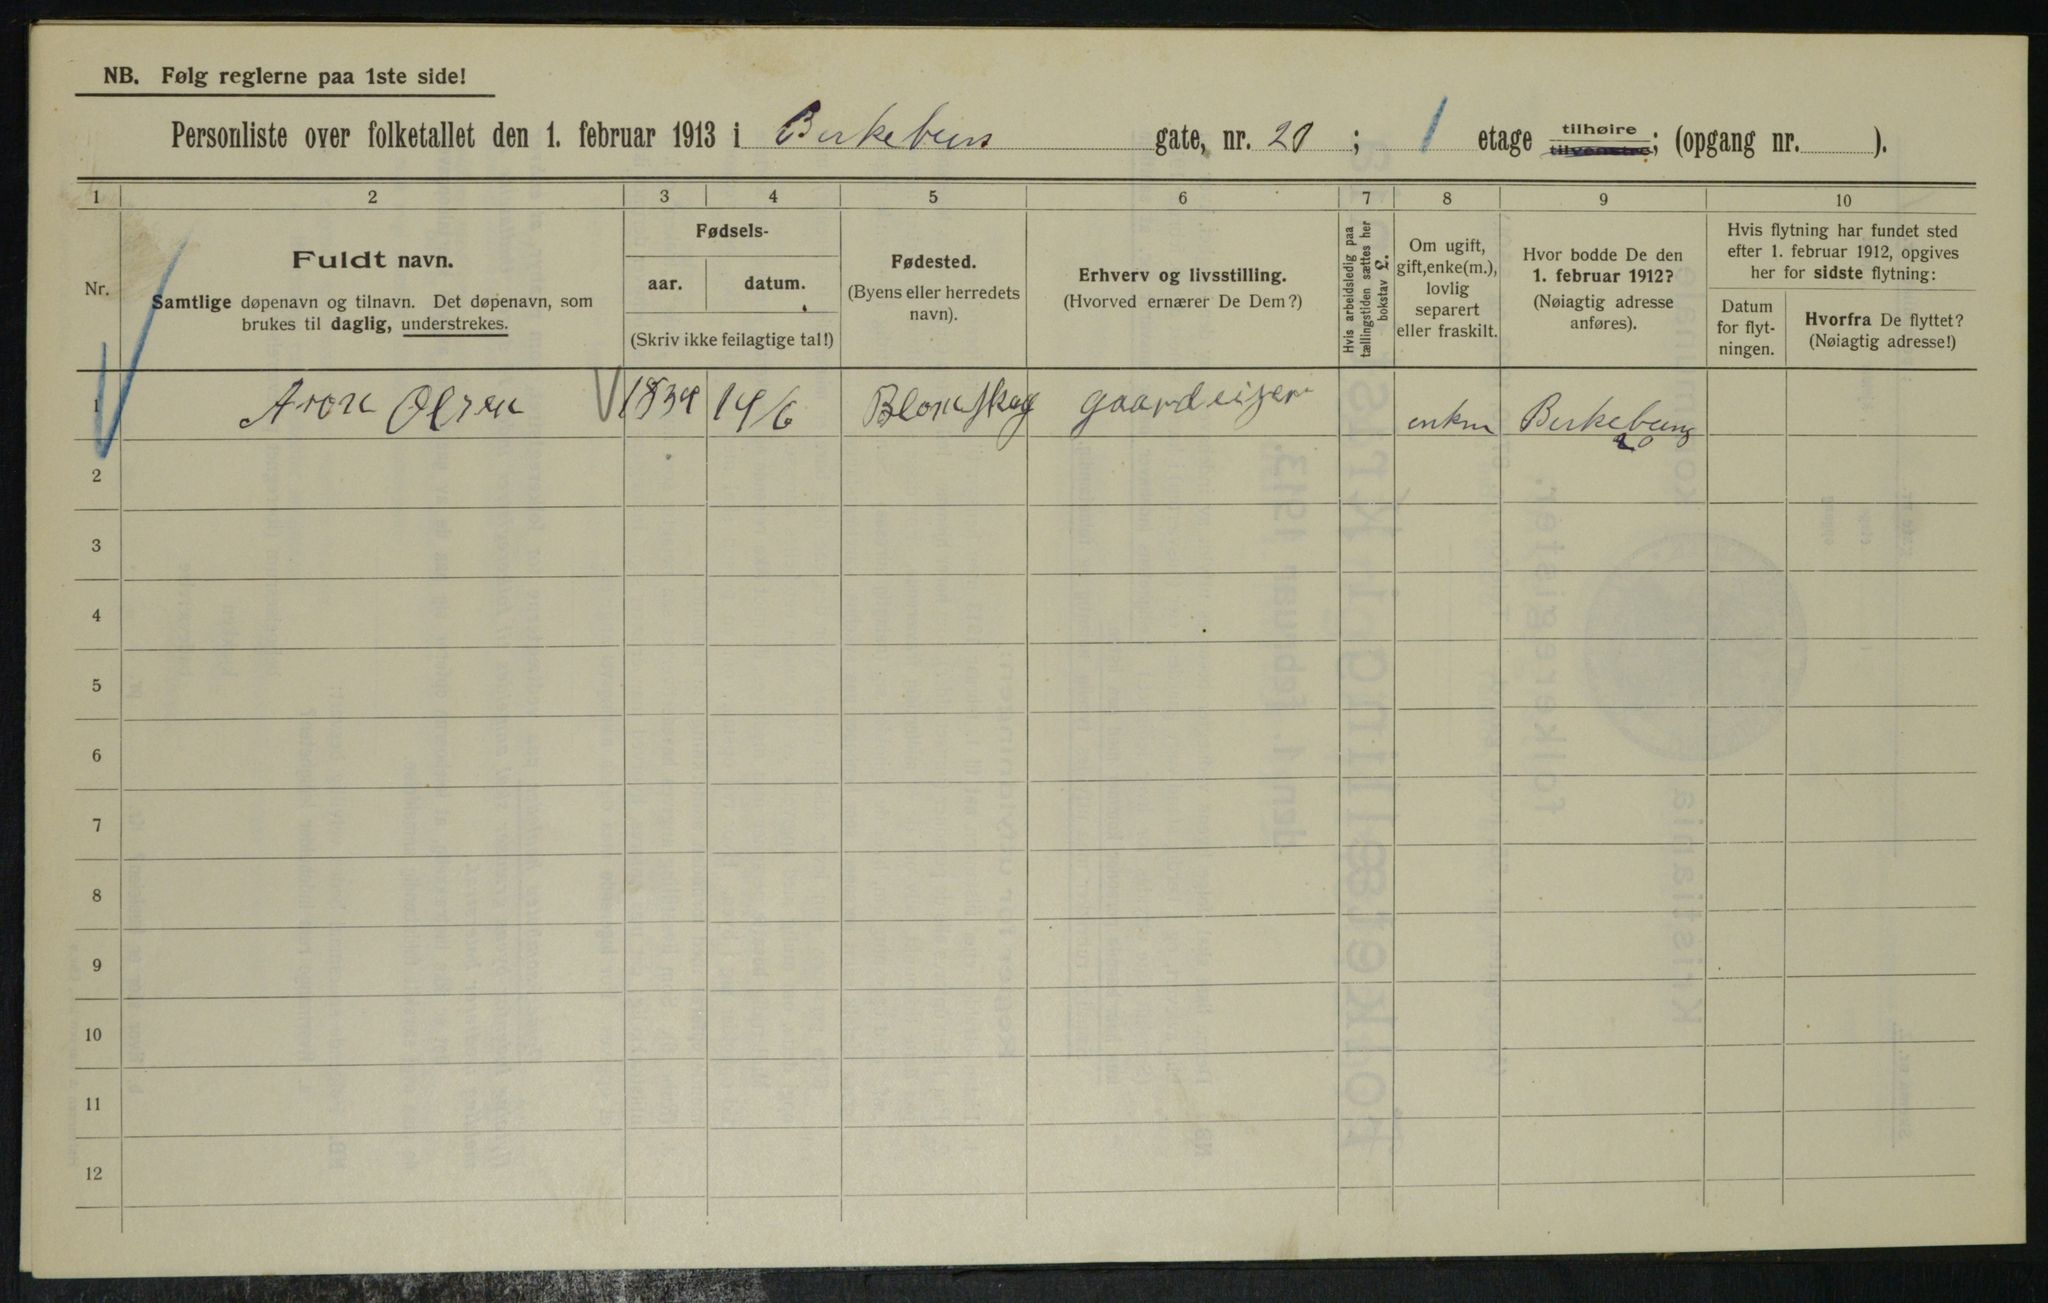 NB. Følg reglerne paa 1ste side!
Personliste over folketallet den 1. februar 1913 i Birkebens gate, nr. 20 ; 1 etage tilhøire tilvenstre; (opgang nr. ).
1 2 3 4 5 6 7 8 9 10
Nr.
Fuldt navn.
Samtlige døpenavn og tilnavn. Det døpenavn, som
brukes til daglig, understrekes.
Fødsels-
aar. datum.
(Skriv ikke feilagtige tal!)
Fødested.
(Byens eller herredets
navn).
Erhverv og livsstilling.
(Hvorved ernærer De Dem?)
Hvis arbeidsledig paa
tællingstiden sættes her
bokstav L.
Om ugift,
gift, enke(m.),
lovlig
separert
eller fraskilt.
Hvor bodde De den
1. februar 1912?
(Nøiagtig adresse
anføres).
Hvis flytning har fundet sted
efter 1. februar 1912, opgives
her for sidste flytning:
Datum
for flyt-
ningen.
Hvorfra De flyttet?
(Nøiagtig adresse!)
1 Aron Olsen 1834 14/6 Blomskog gaardeier enkm Birkebens
20
2
3
4
5
6
7
8
9
10
11
12